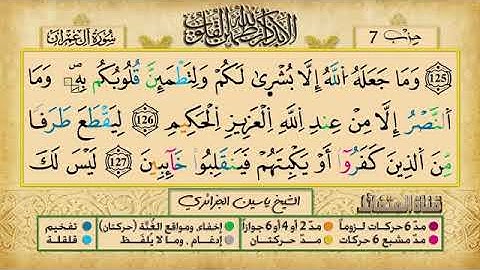 حزب 7
ألا بذكر الله تطمئن القلوب
سورة آل عمران
125 وَمَا جَعَلَهُ اُللَّهُ إِلَّا بُشْر۪ىٰ لَكُمْ وَلِتَطْمَئِنَّ قُلُوبُكُم بِهِۦ وَمَا
اَ۬لنَّصْرُ إِلَّا مِنْ عِندِ اِللَّهِ اِلْعَزِيزِ اِلْحَكِيمِ 126 لِيَقْطَعَ طَرَفاٗ
مِّنَ اَ۬لذِينَ كَفَرُوٓاْ أَوْ يَكْبِتَهُمْ فَيَنقَلِبُواْ خَآئِبِينَ 127 لَيْسَ لَكَ
الشيخ ياسين الجزائري
مدّ 6 حركات لزوماً مدّ 2 أو 4 أو 6 جوازاً إخفاء، ومواقع الغُنَّة (حركتان) تفخيم
مدّ مشبع 6 حركات مدّ حركتان إدغام، وما لا يُلفَظ قلقلة